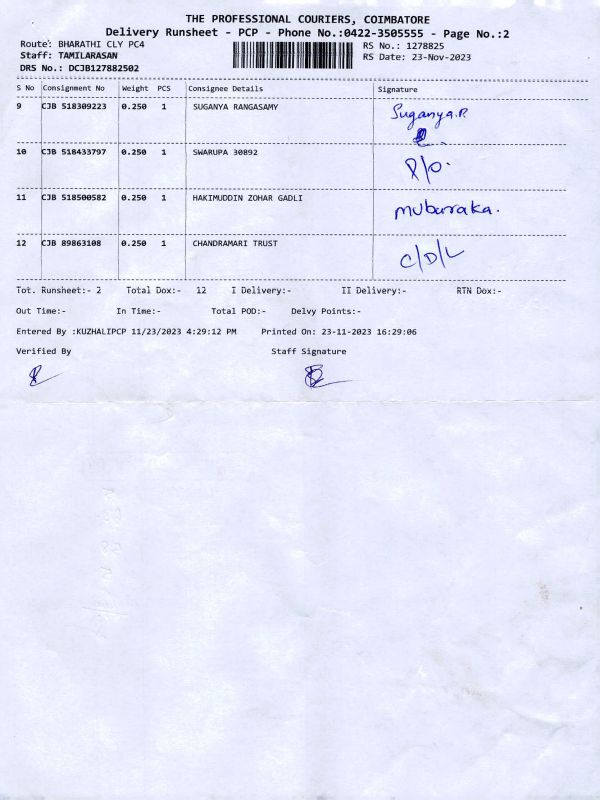 THE PROFESSIONAL COURIERS, COIMBATORE
Delivery Runsheet - PCP - Phone No.:0422-3505555 - Page No.:2
Route: BHARATHI CLY PC4 RS No.: 1278825
Staff: TAMILARASAN RS Date: 23-Nov-2023
DRS No.: DCJB127882502
S No Consignment No Weight PCS Consignee Details Signature
9 CJB 518309223 0.250 1 SUGANYA RANGASAMY Suganya.R.
10 CJB 518433797 0.250 1 SWARUPA 30892
11 CJB 518500582 0.250 1 HAKIMUDDIN ZOHAR GADLI mubarraka.
12 CJB 89863108 0.250 1 CHANDRAMARI TRUST C/D/L
Tot. Runsheet:- 2 Total Dox:- 12 I Delivery:- II Delivery:- RTN Dox:-
Out Time:- In Time:- Total POD:- Delvy Points:-
Entered By :KUZHALIPCP 11/23/2023 4:29:12 PM Printed On: 23-11-2023 16:29:06
Verified By Staff Signature